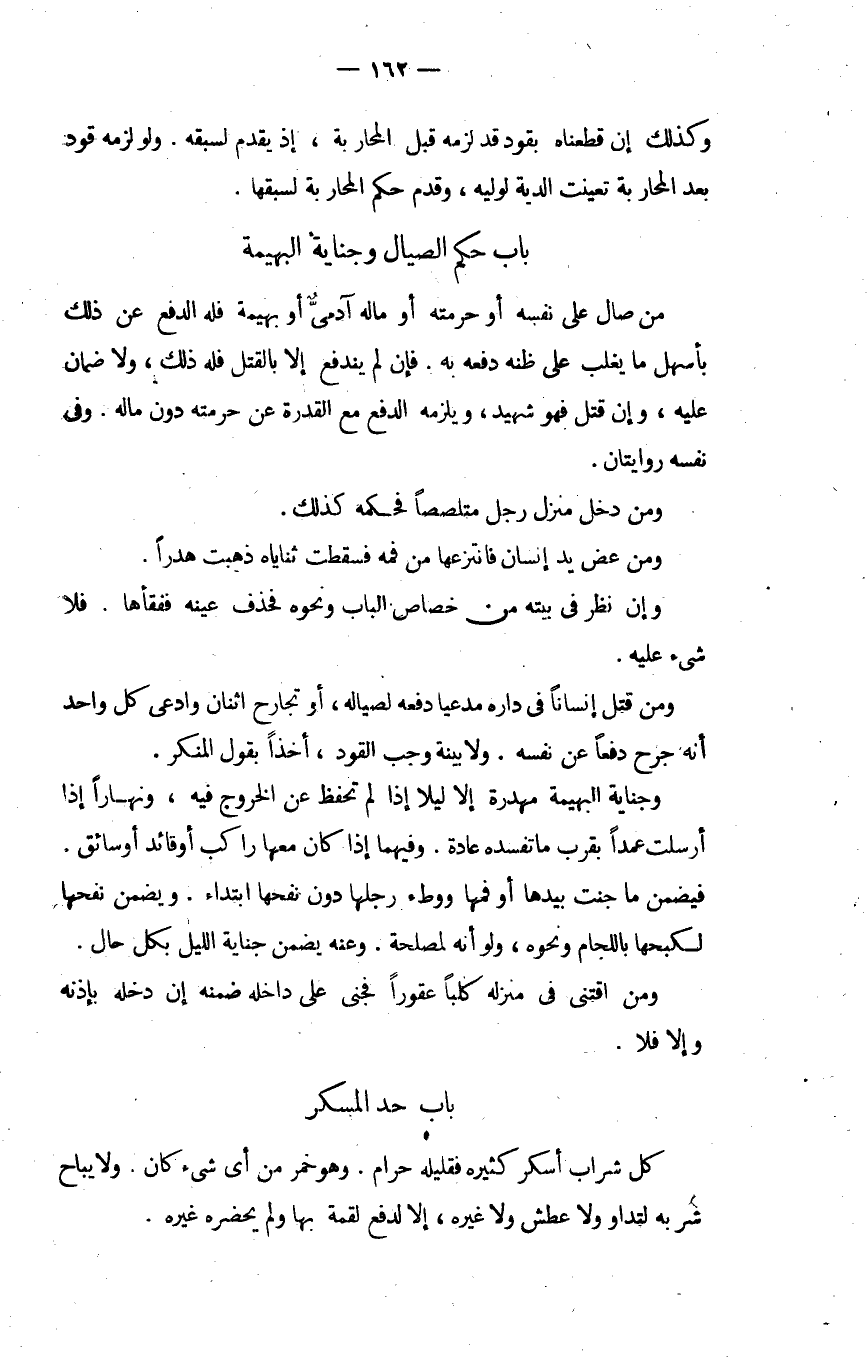 — ١٦٢ —
وكذلك إن قطعناه بقود قد لزمه قبل المحاربة ، إذ يقدم لسبقه . ولو لزمه قود
بعد المحاربة تعينت الدية لوليه ، وقدم حكم المحاربة لسبقها .
باب حكم الصيال وجناية البهيمة
من صال على نفسه أو حرمته أو ماله آدمىٌّ أو بهيمة فله الدفع عن ذلك
بأسهل ما يغلب على ظنه دفعه به . فإن لم يندفع إلا بالقتل فله ذلك ، ولا ضمان
عليه ، وإن قتل فهو شهيد ، ويلزمه الدفع مع القدرة عن حرمته دون ماله . وفى
نفسه روايتان .
ومن دخل منزل رجل متلصصاً فحكمه كذلك .
ومن عض يد إنسان فانتزعها من فمه فسقطت ثناياه ذهبت هدراً .
وإن نظر فى بيته من خصاص الباب ونحوه فحذف عينه ففقأها . فلا
شىء عليه .
ومن قتل إنساناً فى داره مدعيا دفعه لصياله ، أو تجارح اثنان وادعى كل واحد
أنه جرح دفعاً عن نفسه . ولا بينة وجب القود ، أخذاً بقول المنكر .
وجناية البهيمة مهدرة إلا ليلا إذا لم تحفظ عن الخروج فيه ، ونهاراً إذا
أرسلت عمداً بقرب ما تفسده عادة . وفيهما إذا كان معها راكب أو قائد أو سائق .
فيضمن ما جنت بيدها أو فمها ووطء رجلها دون نفحها ابتداء . ويضمن نفحها
لكبحها باللجام ونحوه ، ولو أنه لمصلحة . وعنه يضمن جناية الليل بكل حال .
ومن اقتنى فى منزله كلباً عقوراً فجنى على داخله ضمنه إن دخله بإذنه
وإلا فلا .
باب حد المسكر
كل شراب أسكر كثيره فقليله حرام . وهو خمر من أى شىء كان . ولا يباح
شربه لتداو ولا عطش ولا غيره ، إلا لدفع لقمة بها ولم يحضره غيره .